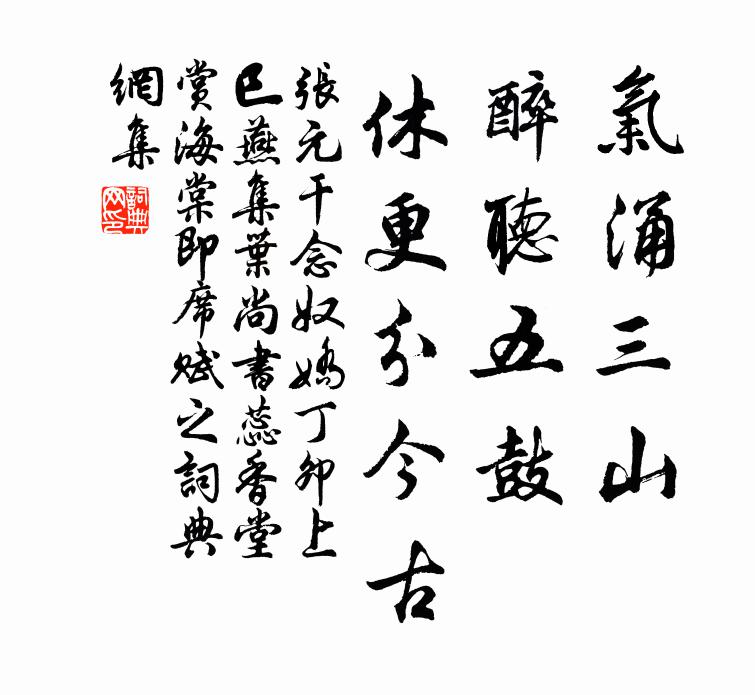 氣涌三山
醉聽五鼓
休更分今古
張元干念奴嬌丁卯上
巳燕集葉尚書蕊香堂
賞海棠即席賦之詞典
網集
詞典
网印